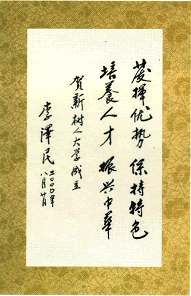 发挥优势 保持特色
培養人才 振兴中華
贺新树人大学成立
李泽民
二〇〇〇年
八月廿日